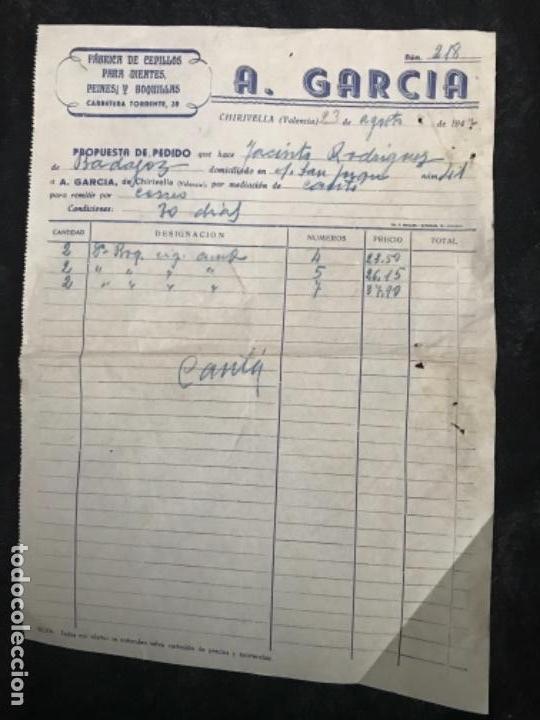 FÁBRICA DE CEPILLOS
PARA DIENTES,
PEINES, Y BOQUILLAS
CARRETERA TORRENTE, 38
Núm. 218
A. GARCIA
CHIRIVELLA (Valencia) 23 de agosto de 194
PROPUESTA DE PEDIDO que hace Jacinto Rodriguez
de Badajoz domiciliado en c/ San núm.
a A. GARCIA, de Chirivella (Valencia), por mediación de Cantó
para remitir por correo
Condiciones: 30 días
CANTIDAD DESIGNACION NUMEROS PRECIO TOTAL
2 4 23.50
2 " " " " 5 26.15
2 " " " " 7 37.90
NOTA: Todas mis ofertas se entienden salvo variación de precios y existencias.
todocoleccion